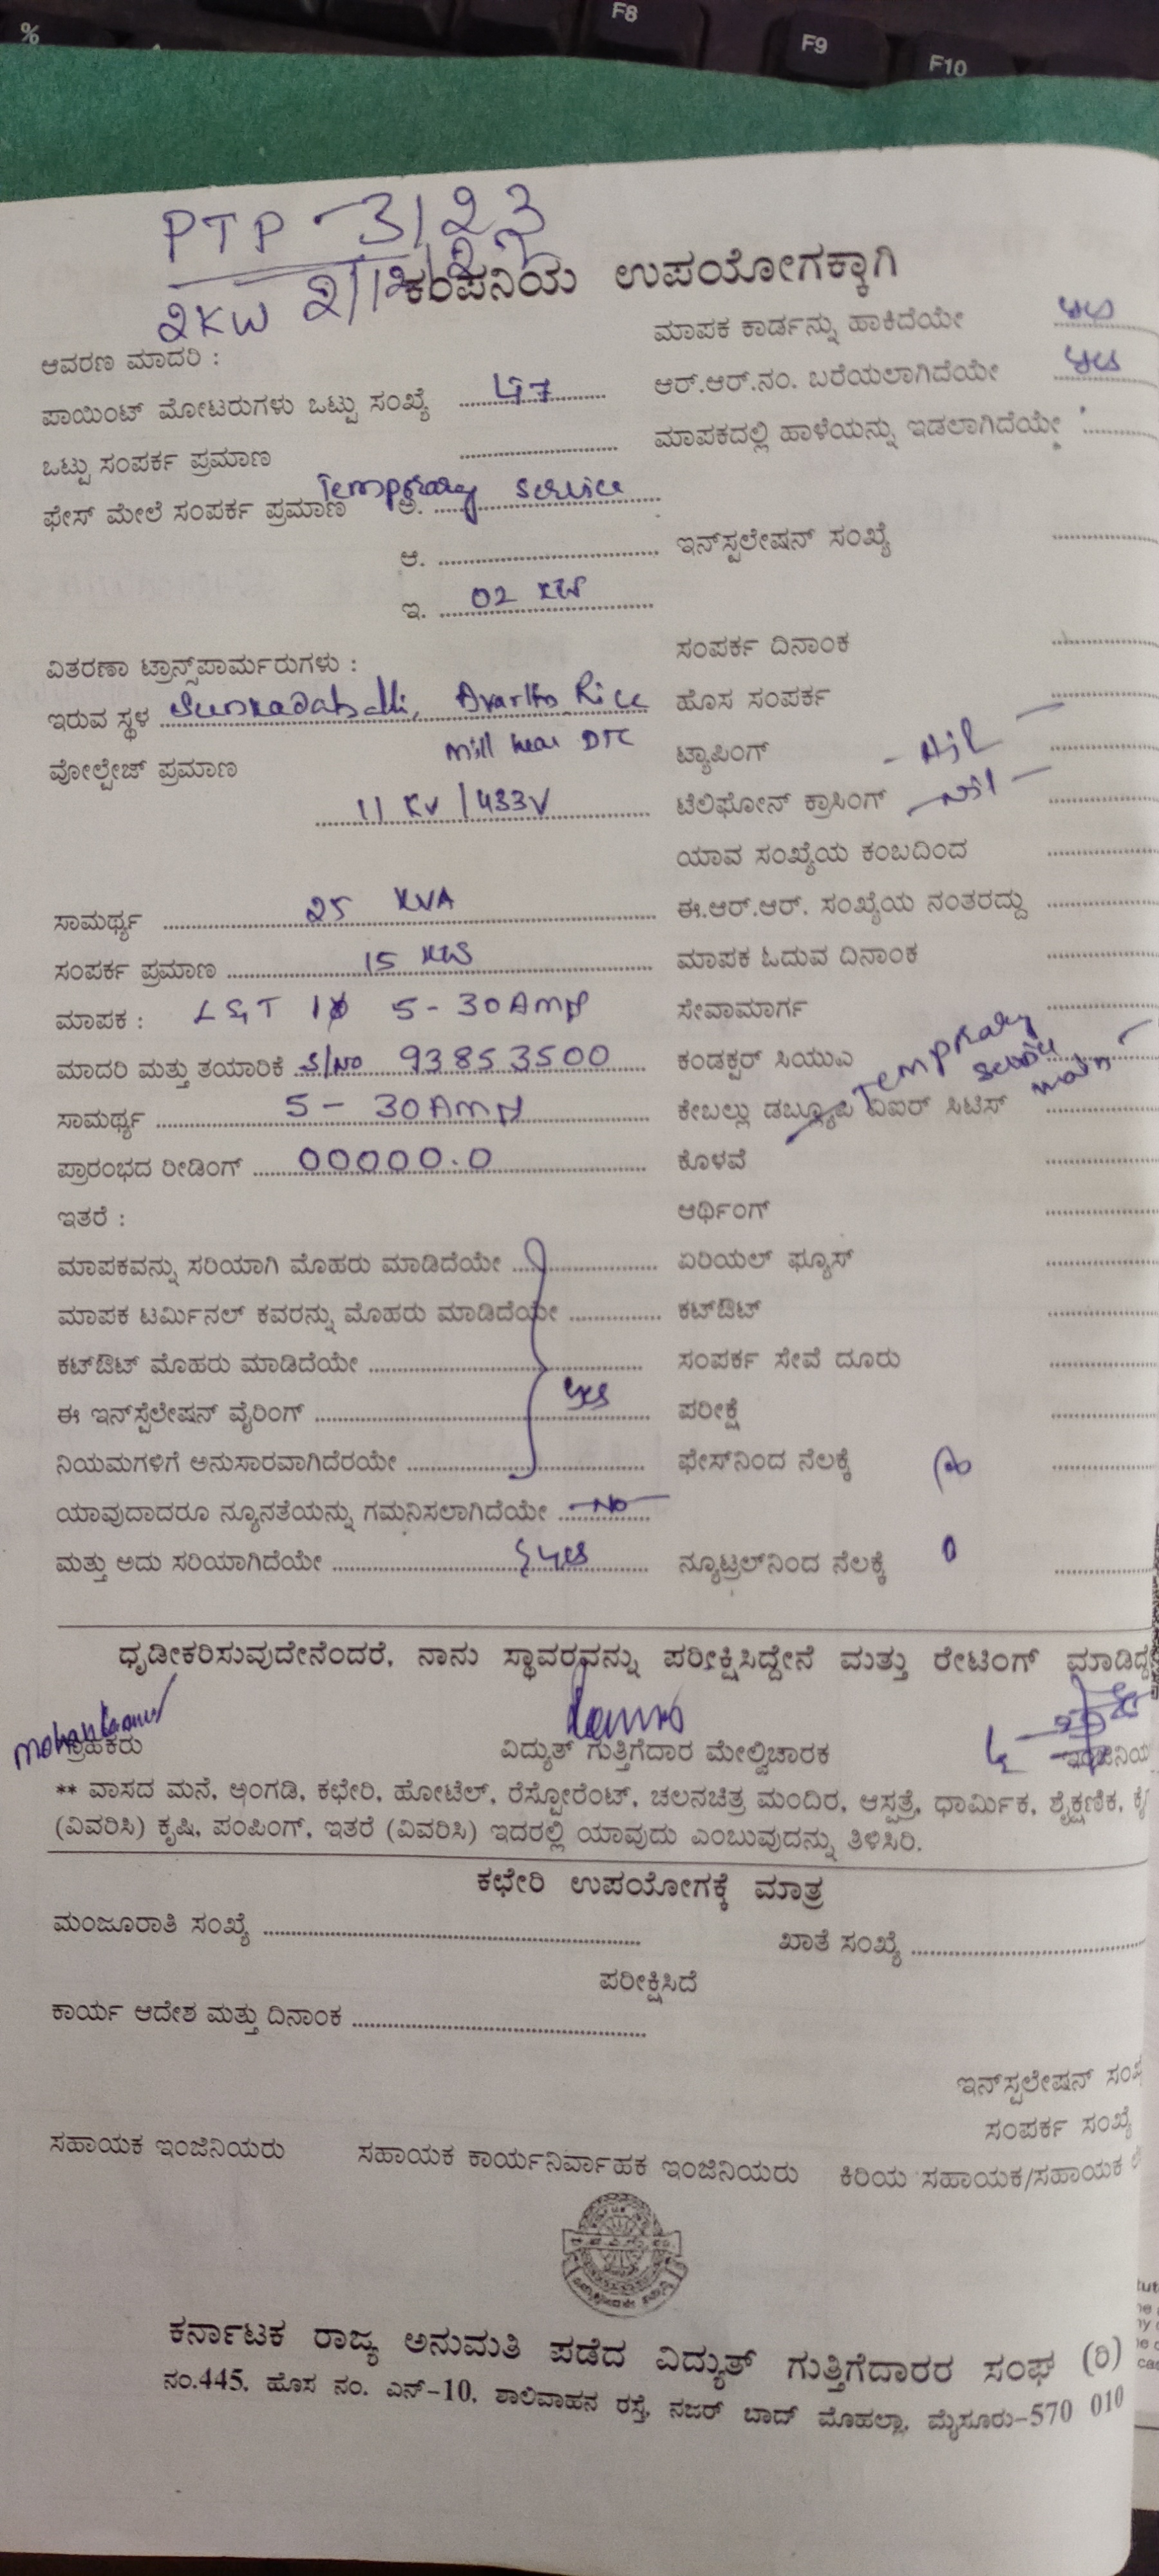 %
F8
F9
F10
PTP - 3/23
2KW 2/12/23
ಕಂಪನಿಯ ಉಪಯೋಗಕ್ಕಾಗಿ
ಮಾಪಕ ಕಾರ್ಡನ್ನು ಹಾಕಿದೆಯೇ yes
ಆವರಣ ಮಾದರಿ :
ಆರ್.ಆರ್.ನಂ. ಬರೆಯಲಾಗಿದೆಯೇ yes
ಪಾಯಿಂಟ್ ಮೋಟರುಗಳು ಒಟ್ಟು ಸಂಖ್ಯೆ
ಮಾಪಕದಲ್ಲಿ ಹಾಳೆಯನ್ನು ಇಡಲಾಗಿದೆಯೇ
ಒಟ್ಟು ಸಂಪರ್ಕ ಪ್ರಮಾಣ
ಫೇಸ್ ಮೇಲೆ ಸಂಪರ್ಕ ಪ್ರಮಾಣ ಅ. Temporary service
ಆ. ಇನ್‌ಸ್ಟಲೇಷನ್ ಸಂಖ್ಯೆ
ಇ. 02 KW
ವಿತರಣಾ ಟ್ರಾನ್ಸ್‌ಪಾರ್ಮರುಗಳು : ಸಂಪರ್ಕ ದಿನಾಂಕ
ಇರುವ ಸ್ಥಳ Rice ಹೊಸ ಸಂಪರ್ಕ
mill near DTC
ವೋಲ್ಟೇಜ್ ಪ್ರಮಾಣ ಟ್ಯಾಪಿಂಗ್ - Nil -
11 KV / 433V ಟೆಲಿಫೋನ್ ಕ್ರಾಸಿಂಗ್ - Nil -
ಯಾವ ಸಂಖ್ಯೆಯ ಕಂಬದಿಂದ
ಸಾಮರ್ಥ್ಯ 25 KVA ಈ.ಆರ್.ಆರ್. ಸಂಖ್ಯೆಯ ನಂತರದ್ದು
ಸಂಪರ್ಕ ಪ್ರಮಾಣ 15 KW ಮಾಪಕ ಓದುವ ದಿನಾಂಕ
ಮಾಪಕ : L&T 1ϕ 5-30Amp ಸೇವಾಮಾರ್ಗ
ಮಾದರಿ ಮತ್ತು ತಯಾರಿಕೆ S/No 93853500 ಕಂಡಕ್ಟರ್ ಸಿಯುಎ Temporary service
ಸಾಮರ್ಥ್ಯ 5 - 30Amp ಕೇಬಲ್ಲು ಡಬ್ಲ್ಯೂಪಿ ವಿಐರ್ ಸಿಟಿಸ್
ಪ್ರಾರಂಭದ ರೀಡಿಂಗ್ 00000.0 ಕೊಳವೆ
ಇತರೆ : ಆರ್ಥಿಂಗ್
ಮಾಪಕವನ್ನು ಸರಿಯಾಗಿ ಮೊಹರು ಮಾಡಿದೆಯೇ ಏರಿಯಲ್ ಫ್ಯೂಸ್
ಮಾಪಕ ಟರ್ಮಿನಲ್ ಕವರನ್ನು ಮೊಹರು ಮಾಡಿದೆಯೇ ಕಟ್‌ಔಟ್
ಕಟ್‌ಔಟ್ ಮೊಹರು ಮಾಡಿದೆಯೇ ಸಂಪರ್ಕ ಸೇವೆ ದೂರು
ಈ ಇನ್‌ಸ್ಟೆಲೇಷನ್ ವೈರಿಂಗ್ yes ಪರೀಕ್ಷೆ
ನಿಯಮಗಳಿಗೆ ಅನುಸಾರವಾಗಿದೆರಯೇ ಫೇಸ್‌ನಿಂದ ನೆಲಕ್ಕೆ
ಯಾವುದಾದರೂ ನ್ಯೂನತೆಯನ್ನು ಗಮನಿಸಲಾಗಿದೆಯೇ - No -
ಮತ್ತು ಅದು ಸರಿಯಾಗಿದೆಯೇ yes ನ್ಯೂಟ್ರಲ್‌ನಿಂದ ನೆಲಕ್ಕೆ 0
ಧೃಡೀಕರಿಸುವುದೇನೆಂದರೆ, ನಾನು ಸ್ಥಾವರವನ್ನು ಪರೀಕ್ಷಿಸಿದ್ದೇನೆ ಮತ್ತು ರೇಟಿಂಗ್ ಮಾಡಿದ್ದ
ಗ್ರಾಹಕರು ವಿದ್ಯುತ್ ಗುತ್ತಿಗೆದಾರ ಮೇಲ್ವಿಚಾರಕ ಇಂಜಿನಿಯ
** ವಾಸದ ಮನೆ, ಅಂಗಡಿ, ಕಛೇರಿ, ಹೋಟೆಲ್, ರೆಸ್ಟೋರೆಂಟ್, ಚಲನಚಿತ್ರ ಮಂದಿರ, ಆಸ್ಪತ್ರೆ, ಧಾರ್ಮಿಕ, ಶೈಕ್ಷಣಿಕ, ಕೈ
(ವಿವರಿಸಿ) ಕೃಷಿ, ಪಂಪಿಂಗ್, ಇತರೆ (ವಿವರಿಸಿ) ಇದರಲ್ಲಿ ಯಾವುದು ಎಂಬುವುದನ್ನು ತಿಳಿಸಿರಿ.
ಕಛೇರಿ ಉಪಯೋಗಕ್ಕೆ ಮಾತ್ರ
ಮಂಜೂರಾತಿ ಸಂಖ್ಯೆ ಖಾತೆ ಸಂಖ್ಯೆ
ಪರೀಕ್ಷಿಸಿದೆ
ಕಾರ್ಯ ಆದೇಶ ಮತ್ತು ದಿನಾಂಕ
ಇನ್‌ಸ್ಟಲೇಷನ್ ಸಂಖ್ಯೆ
ಸಂಪರ್ಕ ಸಂಖ್ಯೆ
ಸಹಾಯಕ ಇಂಜಿನಿಯರು ಸಹಾಯಕ ಕಾರ್ಯನಿರ್ವಾಹಕ ಇಂಜಿನಿಯರು ಕಿರಿಯ ಸಹಾಯಕ/ಸಹಾಯಕ
ಕರ್ನಾಟಕ ರಾಜ್ಯ ಅನುಮತಿ ಪಡೆದ ವಿದ್ಯುತ್ ಗುತ್ತಿಗೆದಾರರ ಸಂಘ (ರಿ)
ನಂ.445, ಹೊಸ ನಂ. ಎನ್-10, ಶಾಲಿವಾಹನ ರಸ್ತೆ, ನಜರ್ ಬಾದ್ ಮೊಹಲ್ಲಾ, ಮೈಸೂರು-570 010